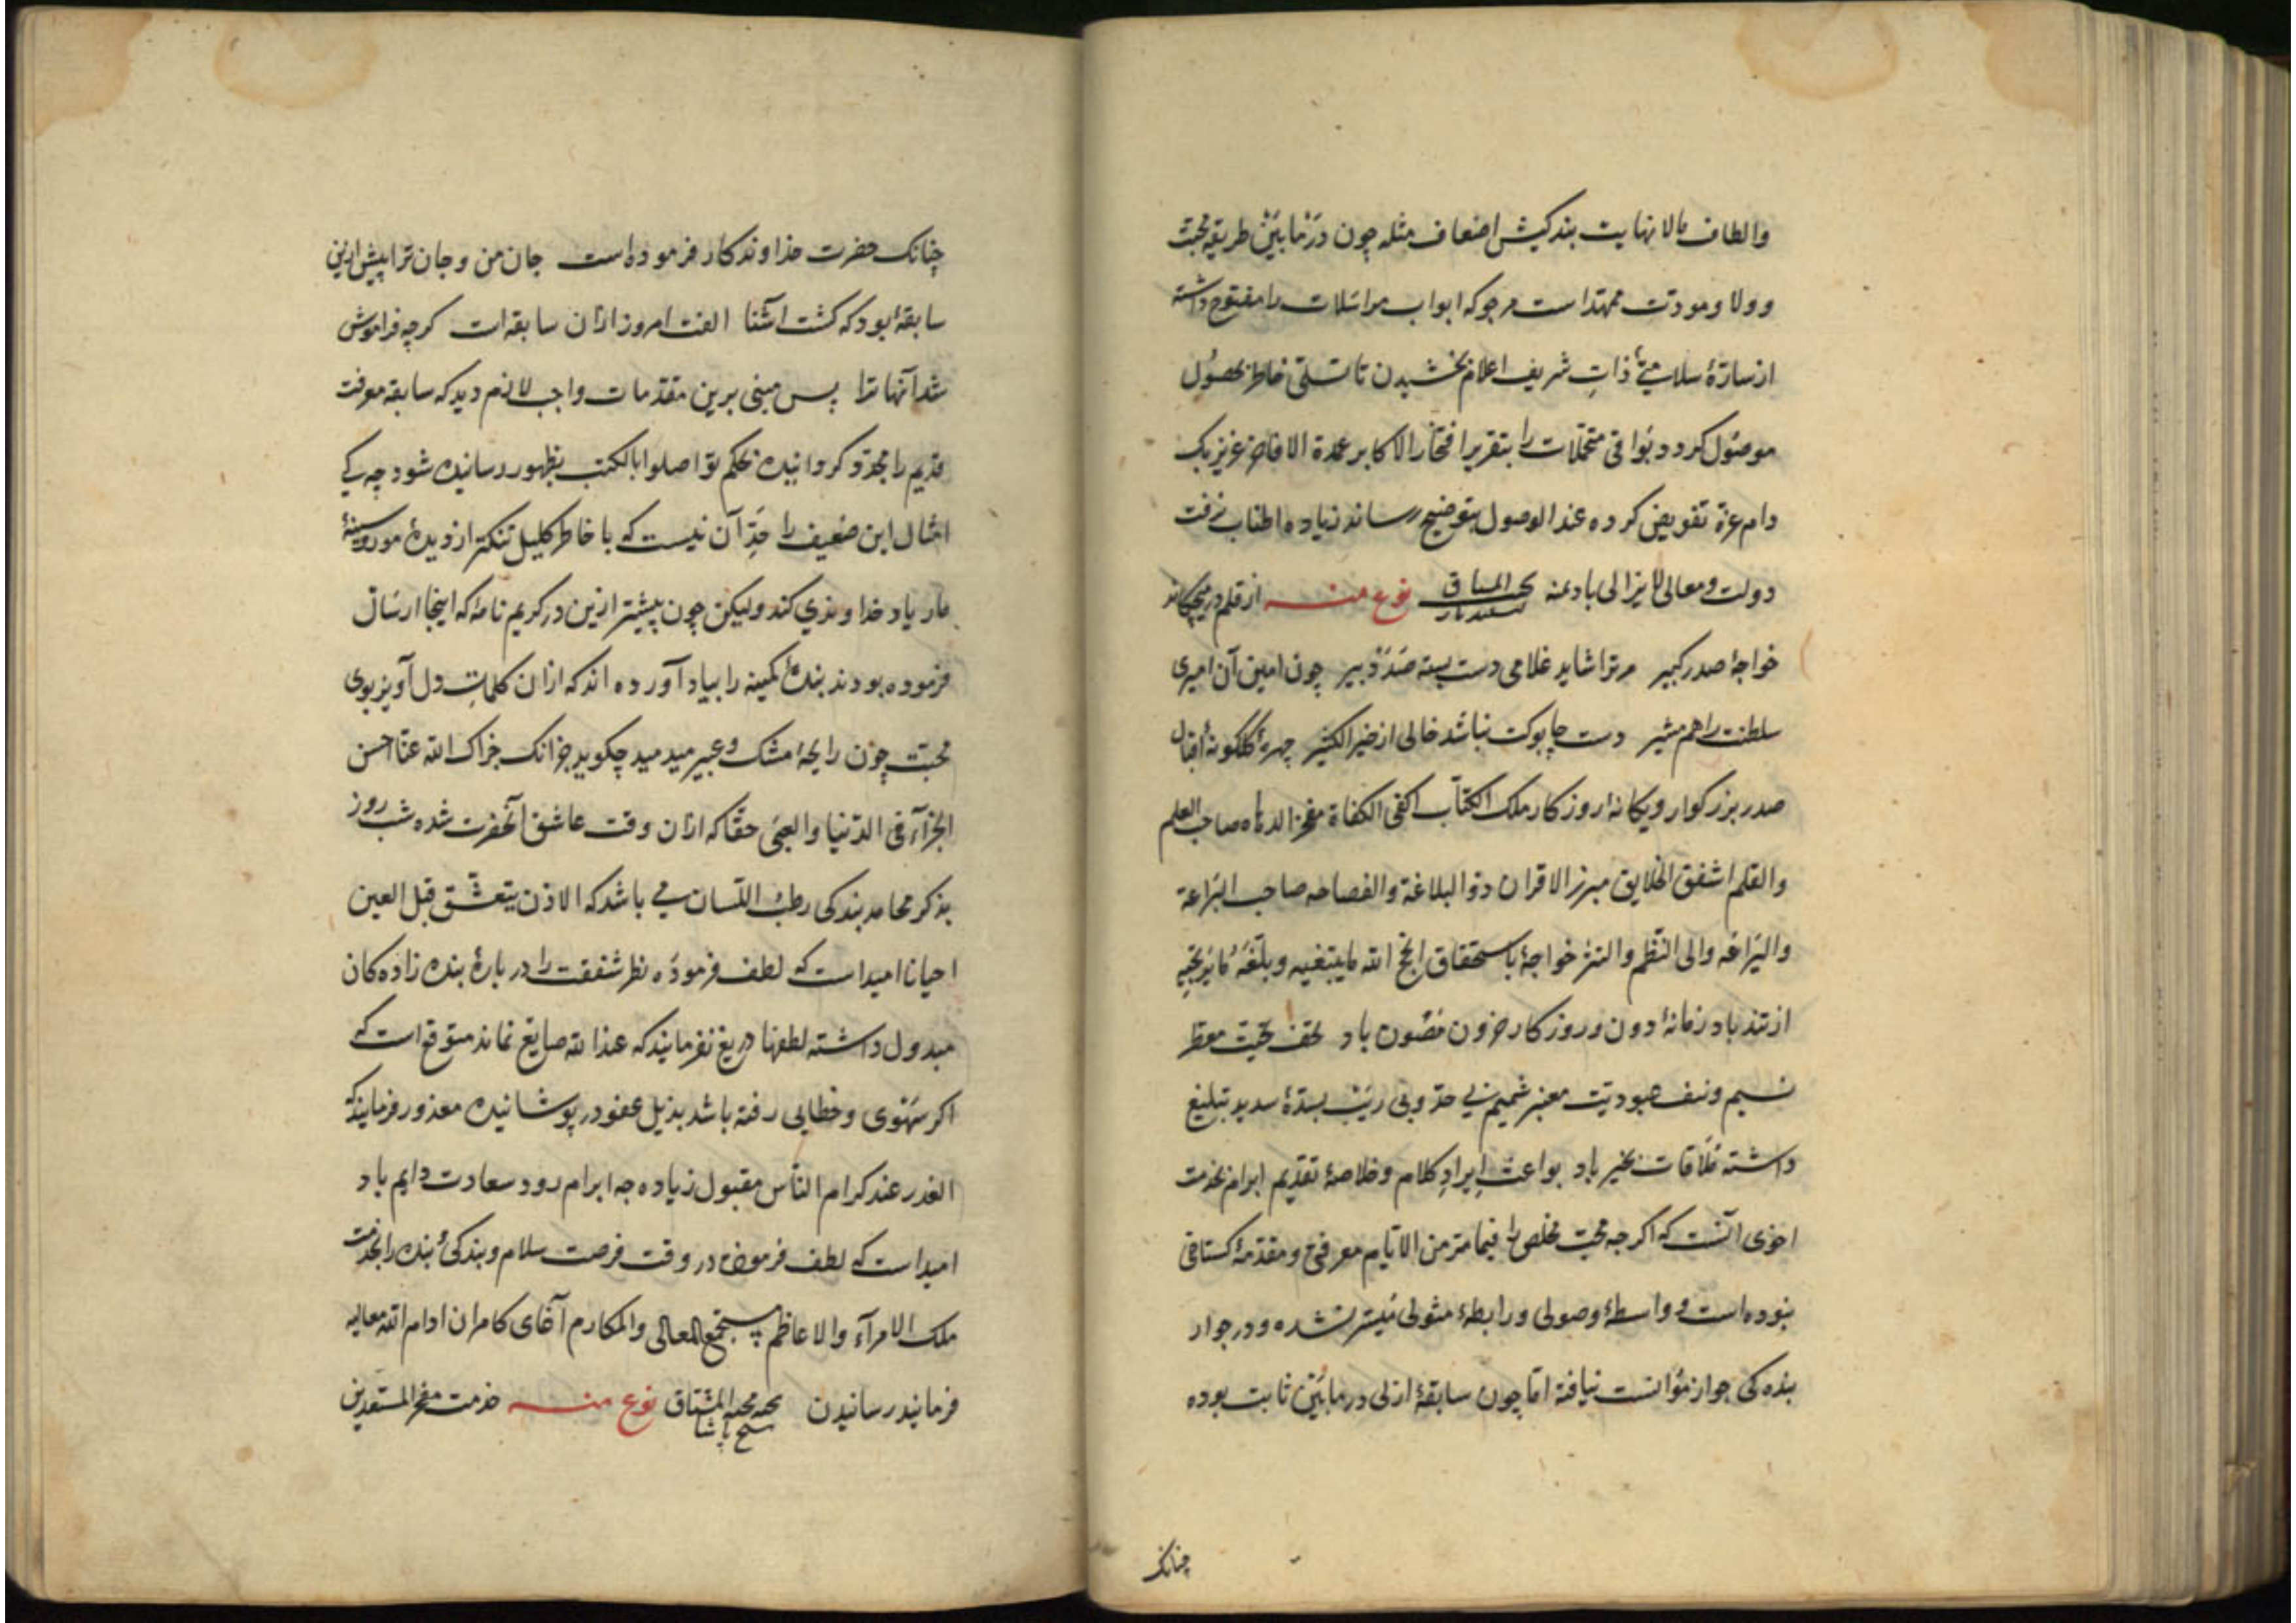 والطاف بالا نهایت بندکیش اضعاف مثله چون درما بین طریقهٔ محبت
و ولا ومودت ممهداست مرجوکه ابواب مراسلات را مفتوح داشته
از سلامتئ ذات شریف اعلام بخشیدن تا تسلی خاطر بحصول
موصول کردد و بواقی متخیلات را بتقریر افتخار الاکابر عمدة الافاخر عزیز بک
دام عزه تفویض کرده عند الوصول بتوضیح رساند زیاده اطناب نرفت
دولت ومعالی لا یزالی باد بمنه نوع منه از قلم در میچکاند
خواجهٔ صدر کبیر مر ترا شاید غلامی دست بسته صد دبیر چون امین آن امیری
سلطنت را هم مشیر دست چابوکت نباشد خالی از خیر الکثیر چهرهٔ کلکونهٔ اقبال
صدر بزرکوار ویکانهٔ روزکار ملک الکتاب اکفی الکفاة مفخر الدهاه صاحب العلم
والقلم اشفق الخلایق مبرز الاقران ذو البلاغة والفصاحه صاحب البراعة
والیراعه والی النظم والنثر خواجهٔ باستحقاق انجح الله مایبتغیه وبلغه مایرتجیه
از تند باد زمانهٔ دون و روزکار حرون مصون باد تحف تحیت معطر
نسیم وتنف عبودیت معنبر شمیم بی حد وبی ریب بسدهٔ سدید تبلیغ
داشته ملاقات بخیر باد بواعث ایراد کلام وخلاصهٔ تقدیم ابرام بخدمت
اخوی آنست که اکرجه محبت مخلص را فیما مر من الایام معرفی ومقدمهٔ کستاخی
نبوده است و واسطهٔ وصولی و رابطهٔ مثولی میسر نشده و در جوار
بنده کی جواز مؤانست نیافته اما چون سابقهٔ ازلی درمابین ثابت بوده
چنانک
چنانک حضرت خداوندکار فرموده است جان من و جان ترا پیش ازین
سابقهٔ بود که کشت آشنا الفت امروز ازان سابقه است کرچه فراموش
شد آنها ترا پس مبنی برین مقدمات واجب لازم دید که سابقهٔ معرفت
قدیم را مجدد کردانیده بحکم تواصلوا بالکتب بظهور رسانیده شود چه کی
امثال این ضعیف را حد آن نیست که با خاطر کلیل تنکتر از دیدهٔ مور و سینهٔ
مار یاد خداوندی کند ولیکن چون پیشتر ازین در کریم نامهٔ که اینجا ارسال
فرموده بودند بندهٔ کمینه را بیاد آورده اند که ازان کلمات دل آویز بوی
محبت چون رایحهٔ مشک وعبیر میدمید چکوید جز آنک جزاک الله عنا احسن
الجزآء فی الدنیا والعقبی حقا که ازان وقت عاشق آنحضرت شده شب روز
بذکر محامد بندکی رطب اللسان می باشد که الاذن یتعشق قبل العین
احیانا امیداست که لطف فرموده نظر شفقت را در بارهٔ بنده زاده کان
مبذول داشته لطفها دریغ نفرمایند که عند الله ضایع نماند متوقع است که
اکر سهوی وخطایی رفته باشد بذیل عفو در پوشانیده معذور فرمایند که
العذر عند کرام الناس مقبول زیاده جه ابرام رود سعادت دایم باد
امیداست که لطف فرموده در وقت فرصت سلام وبندکیٔ بنده را بخدمت
ملک الامرآء والاعاظم مستجمع المعالی والمکارم آقای کامران ادام الله معالیه
فرمایند رسانیدن محبه المشتاق نوع منه خدمت مفخر المستعدین